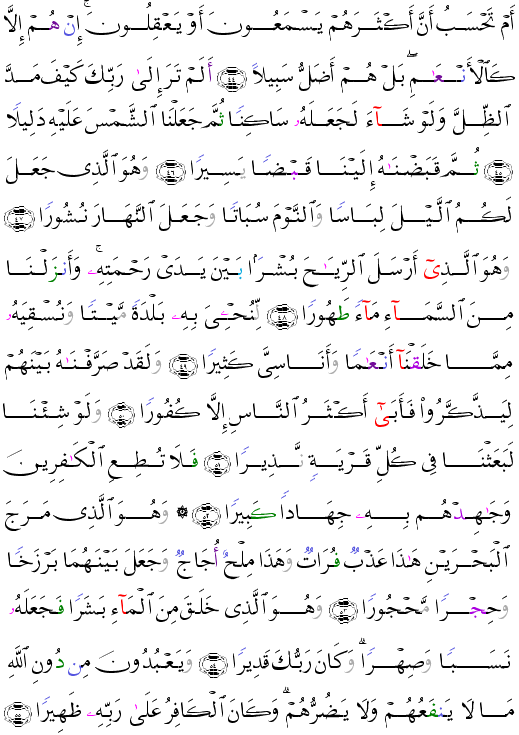 أَمْ تَحْسَبُ أَنَّ أَكْثَرَهُمْ يَسْمَعُونَ أَوْ يَعْقِلُونَ ۚ إِنْ هُمْ إِلَّا
كَٱلْأَنْعَٰمِ ۖ بَلْ هُمْ أَضَلُّ سَبِيلًا ﴿٤٤﴾ أَلَمْ تَرَ إِلَىٰ رَبِّكَ كَيْفَ مَدَّ
ٱلظِّلَّ وَلَوْ شَآءَ لَجَعَلَهُۥ سَاكِنًا ثُمَّ جَعَلْنَا ٱلشَّمْسَ عَلَيْهِ دَلِيلًا
﴿٤٥﴾ ثُمَّ قَبَضْنَٰهُ إِلَيْنَا قَبْضًا يَسِيرًا ﴿٤٦﴾ وَهُوَ ٱلَّذِى جَعَلَ
لَكُمُ ٱلَّيْلَ لِبَاسًا وَٱلنَّوْمَ سُبَاتًا وَجَعَلَ ٱلنَّهَارَ نُشُورًا ﴿٤٧﴾
وَهُوَ ٱلَّذِىٓ أَرْسَلَ ٱلرِّيَٰحَ بُشْرًۢا بَيْنَ يَدَىْ رَحْمَتِهِۦ ۚ وَأَنزَلْنَا
مِنَ ٱلسَّمَآءِ مَآءً طَهُورًا ﴿٤٨﴾ لِّنُحْۦِىَ بِهِۦ بَلْدَةً مَّيْتًا وَنُسْقِيَهُۥ
مِمَّا خَلَقْنَآ أَنْعَٰمًا وَأَنَاسِىَّ كَثِيرًا ﴿٤٩﴾ وَلَقَدْ صَرَّفْنَٰهُ بَيْنَهُمْ
لِيَذَّكَّرُوا۟ فَأَبَىٰٓ أَكْثَرُ ٱلنَّاسِ إِلَّا كُفُورًا ﴿٥٠﴾ وَلَوْ شِئْنَا
لَبَعَثْنَا فِى كُلِّ قَرْيَةٍ نَّذِيرًا ﴿٥١﴾ فَلَا تُطِعِ ٱلْكَٰفِرِينَ
وَجَٰهِدْهُم بِهِۦ جِهَادًا كَبِيرًا ﴿٥٢﴾ ۞ وَهُوَ ٱلَّذِى مَرَجَ
ٱلْبَحْرَيْنِ هَٰذَا عَذْبٌ فُرَاتٌ وَهَٰذَا مِلْحٌ أُجَاجٌ وَجَعَلَ بَيْنَهُمَا بَرْزَخًا
وَحِجْرًا مَّحْجُورًا ﴿٥٣﴾ وَهُوَ ٱلَّذِى خَلَقَ مِنَ ٱلْمَآءِ بَشَرًا فَجَعَلَهُۥ
نَسَبًا وَصِهْرًا ۗ وَكَانَ رَبُّكَ قَدِيرًا ﴿٥٤﴾ وَيَعْبُدُونَ مِن دُونِ ٱللَّهِ
مَا لَا يَنفَعُهُمْ وَلَا يَضُرُّهُمْ ۗ وَكَانَ ٱلْكَافِرُ عَلَىٰ رَبِّهِۦ ظَهِيرًا ﴿٥٥﴾